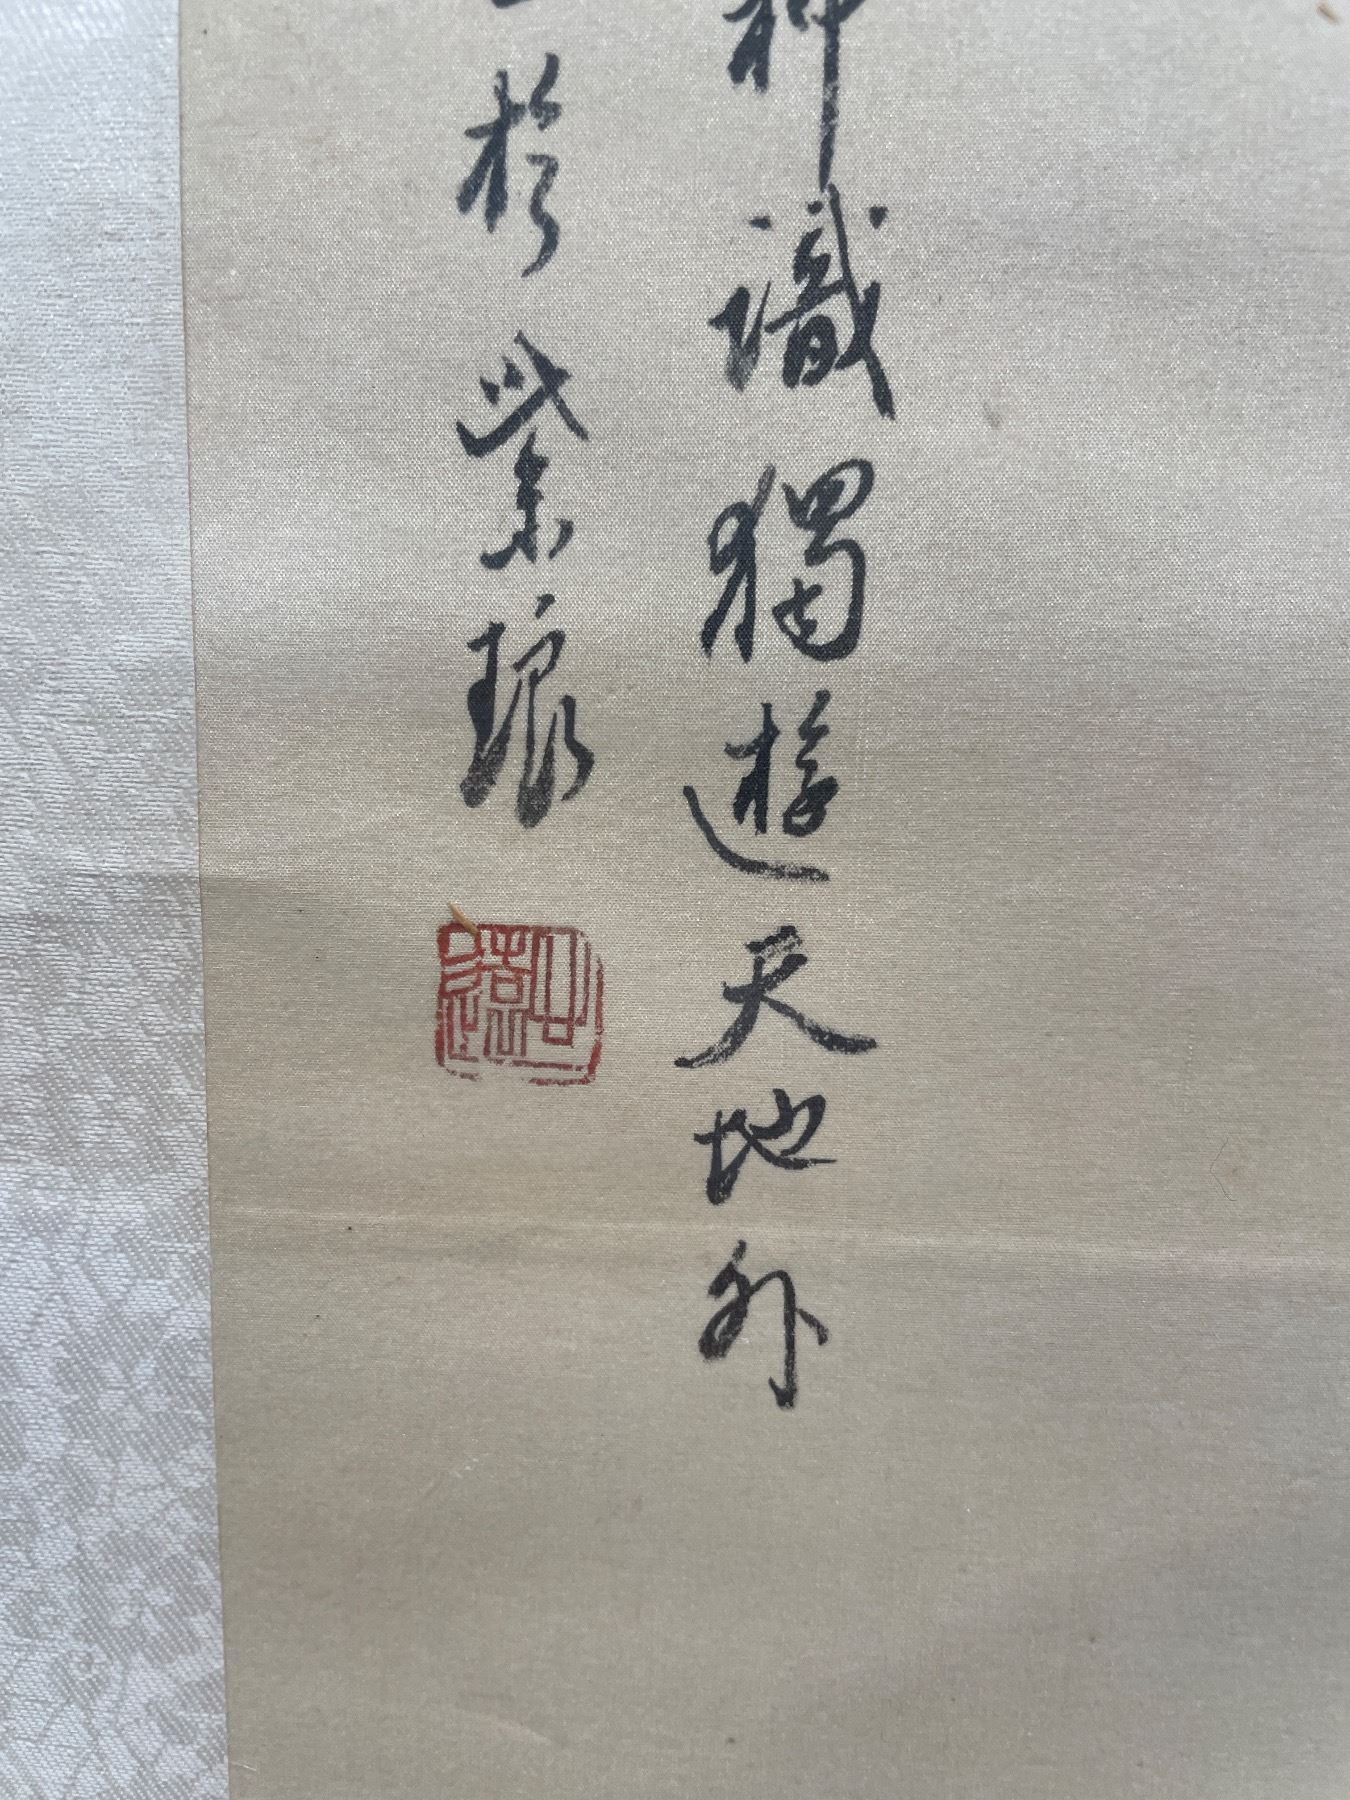 神識獨遊天地外
於紫琅